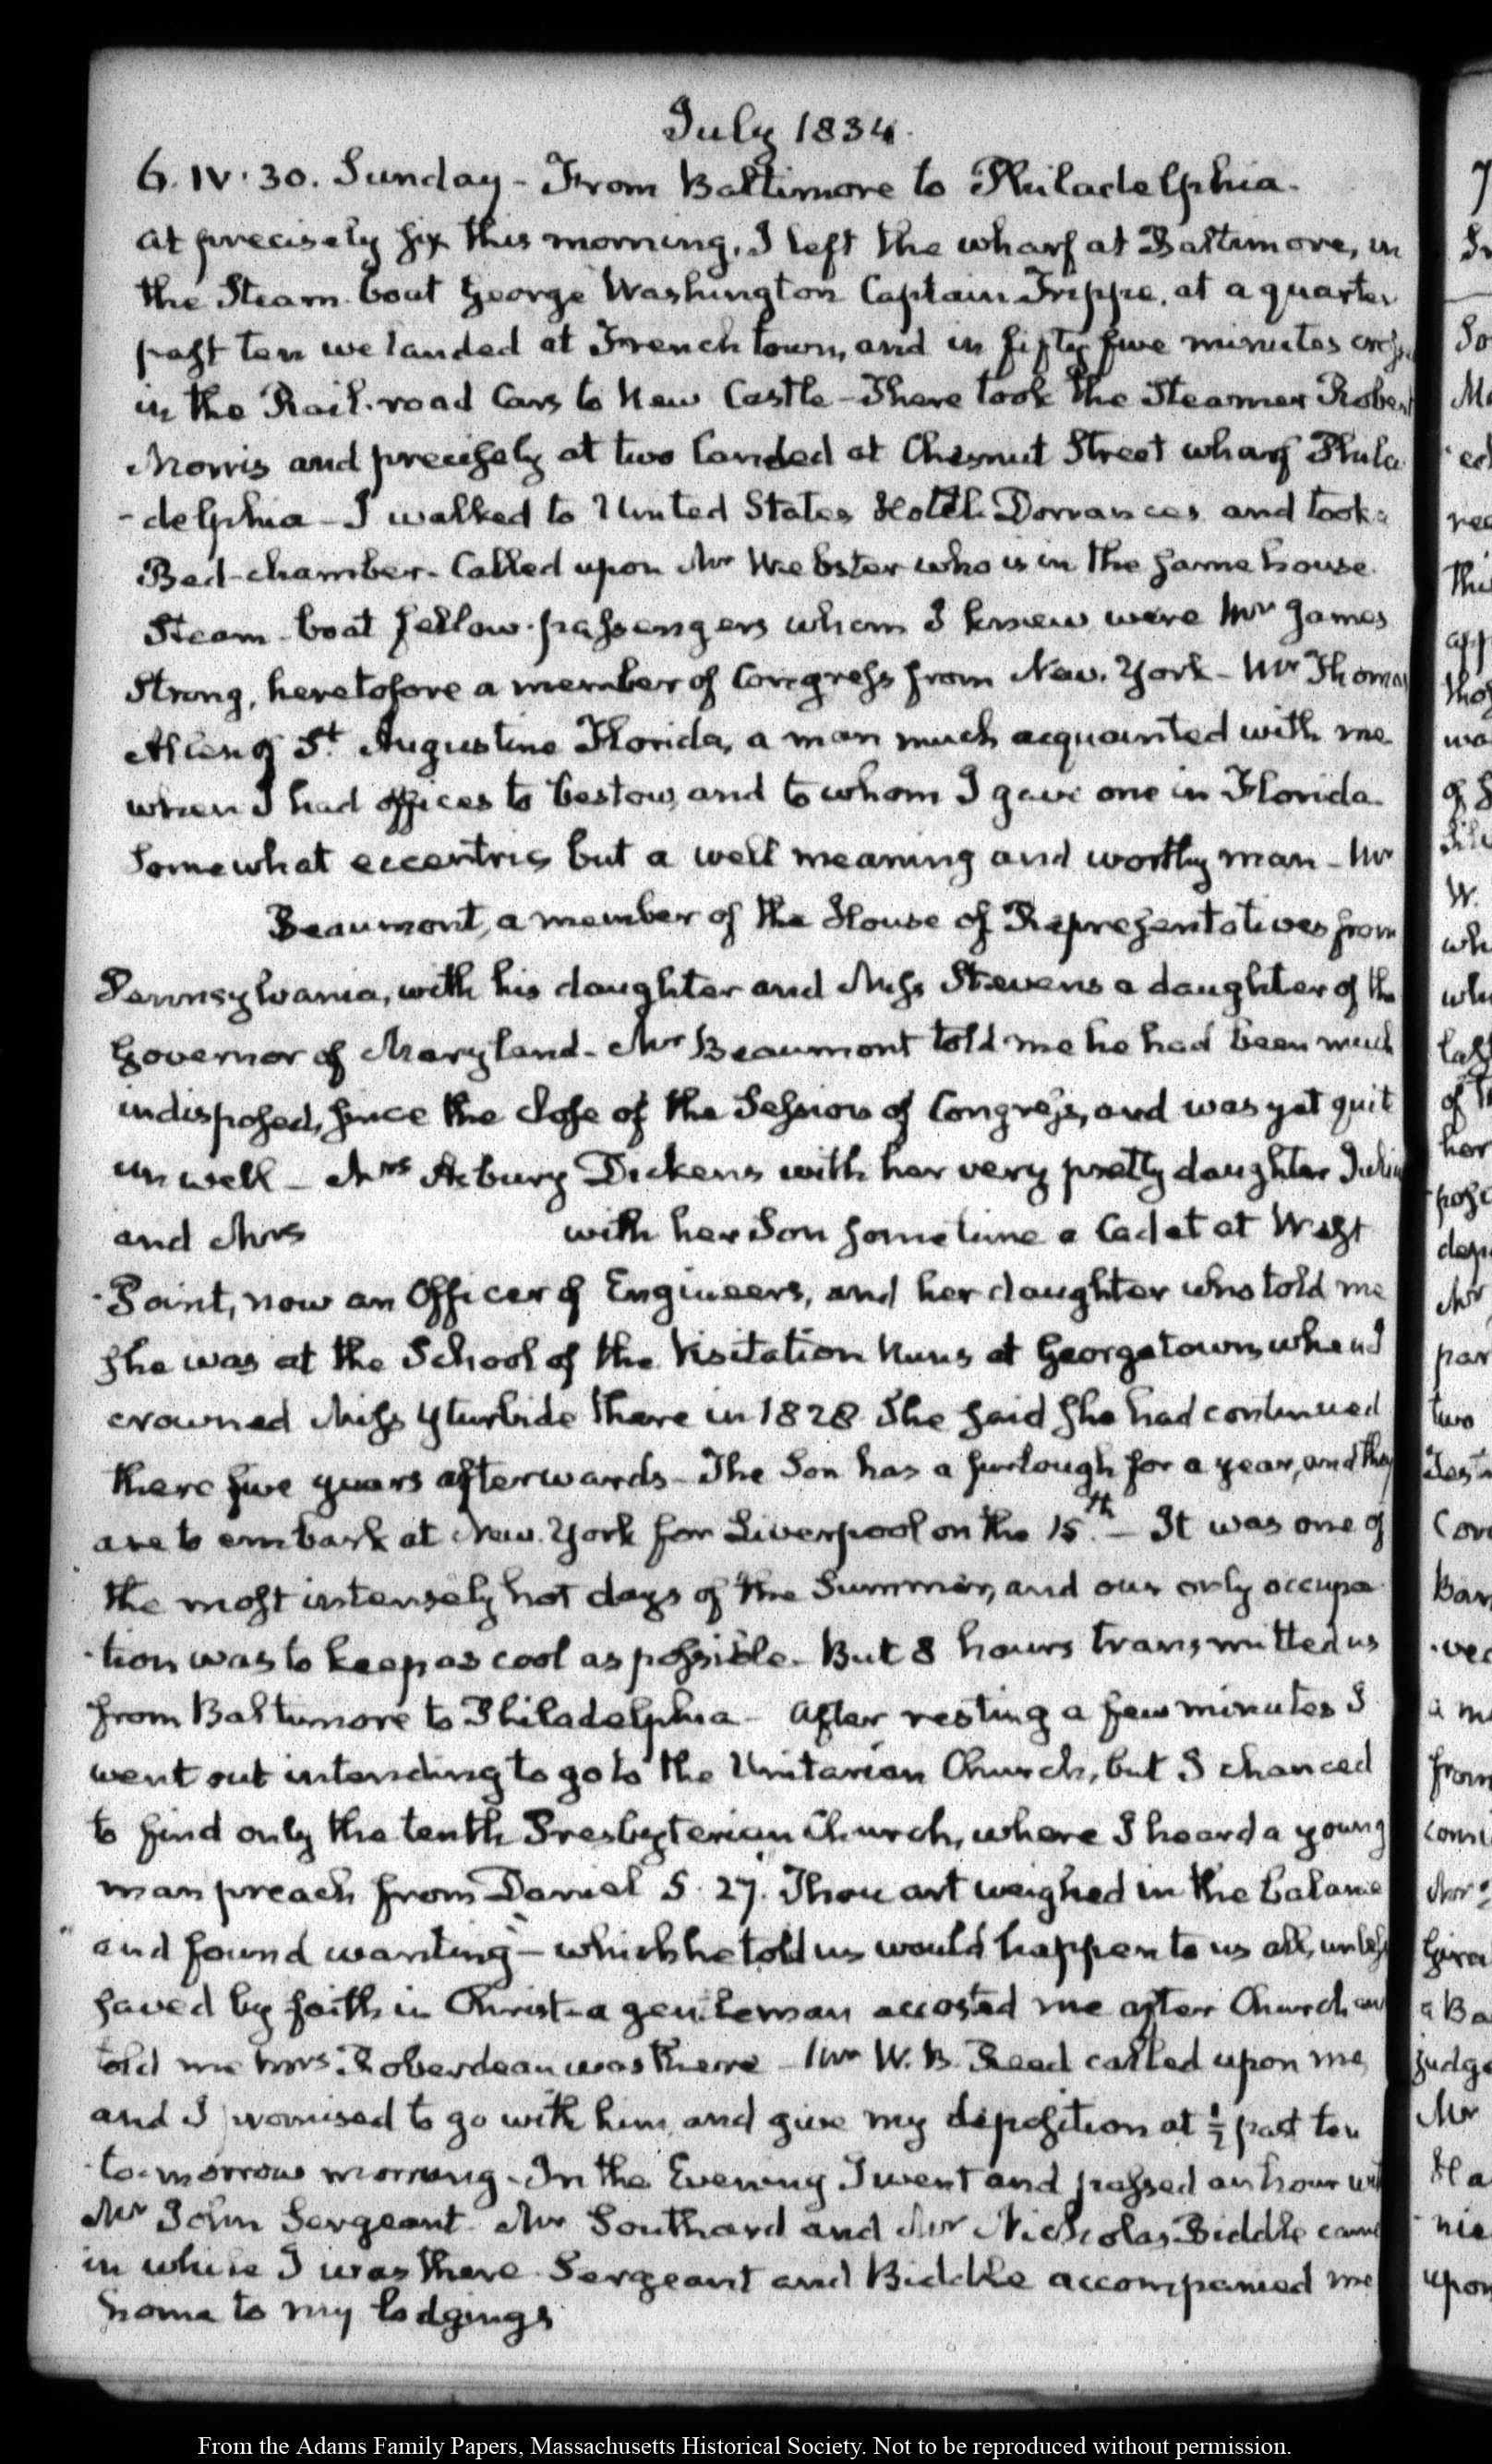 July 1834.
6. IV. 30. Sunday - From Baltimore to Philadelphia.
At precisely six this morning, I left the wharf at Baltimore, in
the Steam-boat George Washington Captain Trippe. at a quarter
past ten we landed at French town, and in fifty five minutes
in the Rail-road Cars to New Castle - There took the Steamer Robert
Morris and precisely at two landed at Chesnut Street wharf Phila
-delphia - I walked to United States Hotel Dorrances and took a
Bed-chamber. Called upon Mr Webster who is in the same house.
Steam-boat fellow-passengers whom I knew were Mr James
Strong, heretofore a member of Congress from New-York - Mr Thomas
of St. Augustine Florida, a man much acquainted with me
when I had offices to bestow, and to whom I gave one in Florida.
Somewhat eccentric but a well meaning and worthy man - Mr
Beaumont, a member of the House of Representatives from
Pennsylvania, with his daughter and Miss Stevens a daughter of the
Governor of Maryland. Mr Beaumont told me he had been much
indisposed, since the close of the Session of Congress, and was yet quite
unwell - Mrs Asbury Dickens with her very pretty daughter Julia
and Mrs with her Son sometime a Cadet at West
-Point, now an Officer of Engineers, and her daughter who told me
she was at the School of the Visitation Nuns at Georgetown, when I
crowned Miss Yturbide there in 1828. She said she had continued
there five years afterwards - The Son has a furlough for a year, and they
are to embark at New-York for Liverpool on the 15.th - It was one of
the most intensely hot days of the Summer, and our only occupa
-tion was to keep as cool as possible. But 8 hours transmitted us
from Baltimore to Philadelphia - After resting a few minutes I
went out intending to go to the Unitarian Church, but I chanced
to find only the tenth Presbyterian Church, where I heard a young
man preach from Daniel 5. 27. Thou art weighed in the balance
and found wanting" - which he told us would happen to us all, unless
saved by faith in Christ - a gentleman accosted me after Church and
told me Mrs Roberdeau was there - Mr W. B. Reed called upon me,
and I promised to go with him, and give my deposition at ½ past ten
to-morrow morning - In the Evening I went and passed an hour with
Mr John Sergeant. Mr Southard and Mr Nicholas Biddle came
in while I was there. Sergeant and Biddle accompanied me
home to my lodgings
From the Adams Family Papers, Massachusetts Historical Society. Not to be reproduced without permission.